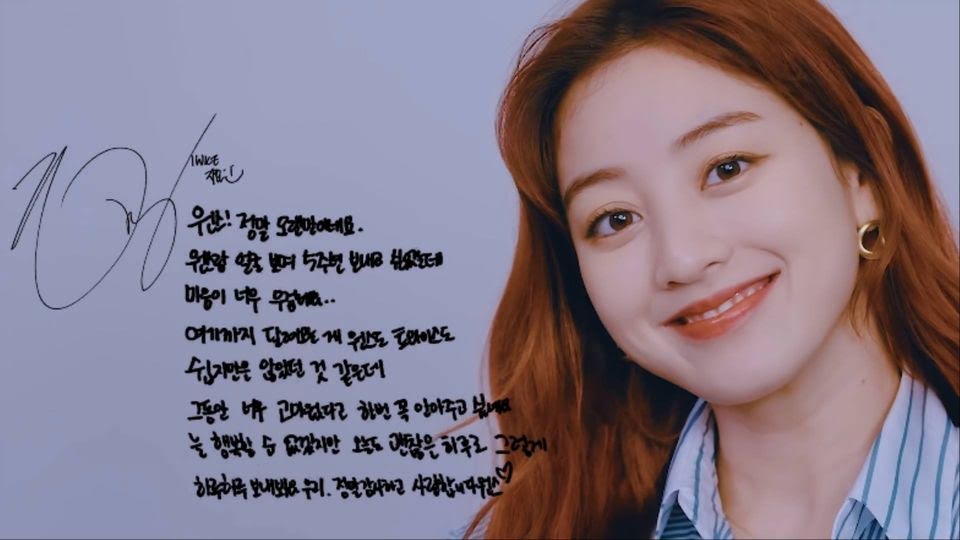 TWICE
지효:)
원쓰! 정말 오랜만이네요.
원스랑 얼굴 보며 5주년 보내고 싶었는데
마음이 너무 무겁네요..
여기까지 달려오는 게 원스도 트와이스도
쉽지만은 않았던 것 같은데
그동안 너무 고마웠다고 한번 꼭 안아주고 싶네요
늘 행복할 순 없겠지만 오늘도 괜찮은 하루로 그렇게
하루하루 보내봐요 우리. 정말 감사하고 사랑합니다 원스♡